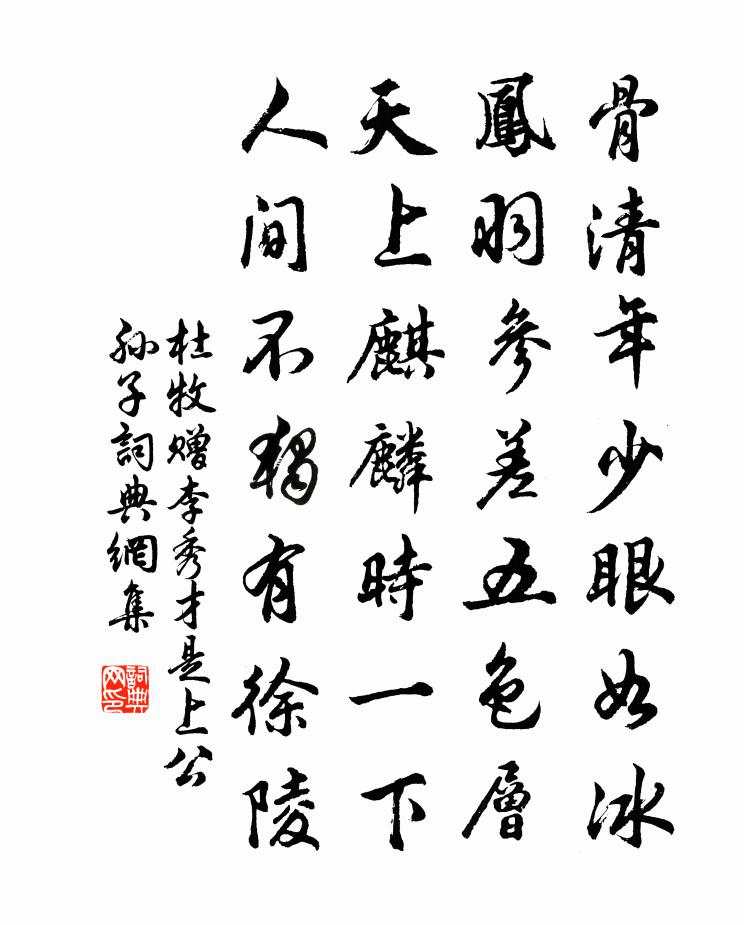 骨清年少眼如冰
鳳羽參差五色層
天上麒麟時一下
人间不獨有徐陵
杜牧贈李秀才是上公
孫子詞典網集
詞典
网印